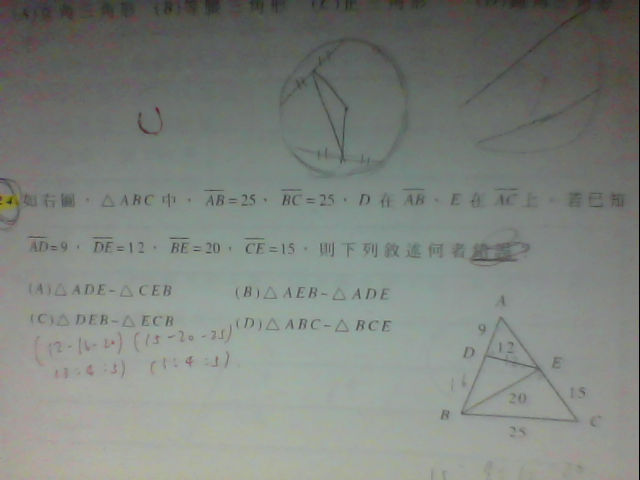 (A)直角三角形 (B)等腰三角形 (C)正三角形
24 如右圖，△ABC中，AB=25，BC=25，D在AB、E在AC上。若已知
AD=9，DE=12，BE=20，CE=15，則下列敘述何者錯誤
(A)△ADE~△CEB (B)△AEB~△ADE
(C)△DEB~△ECB (D)△ABC~△BCE
(12-16-20) (15-20-25)
A
9
D 12 E
16 20 15
B C
25